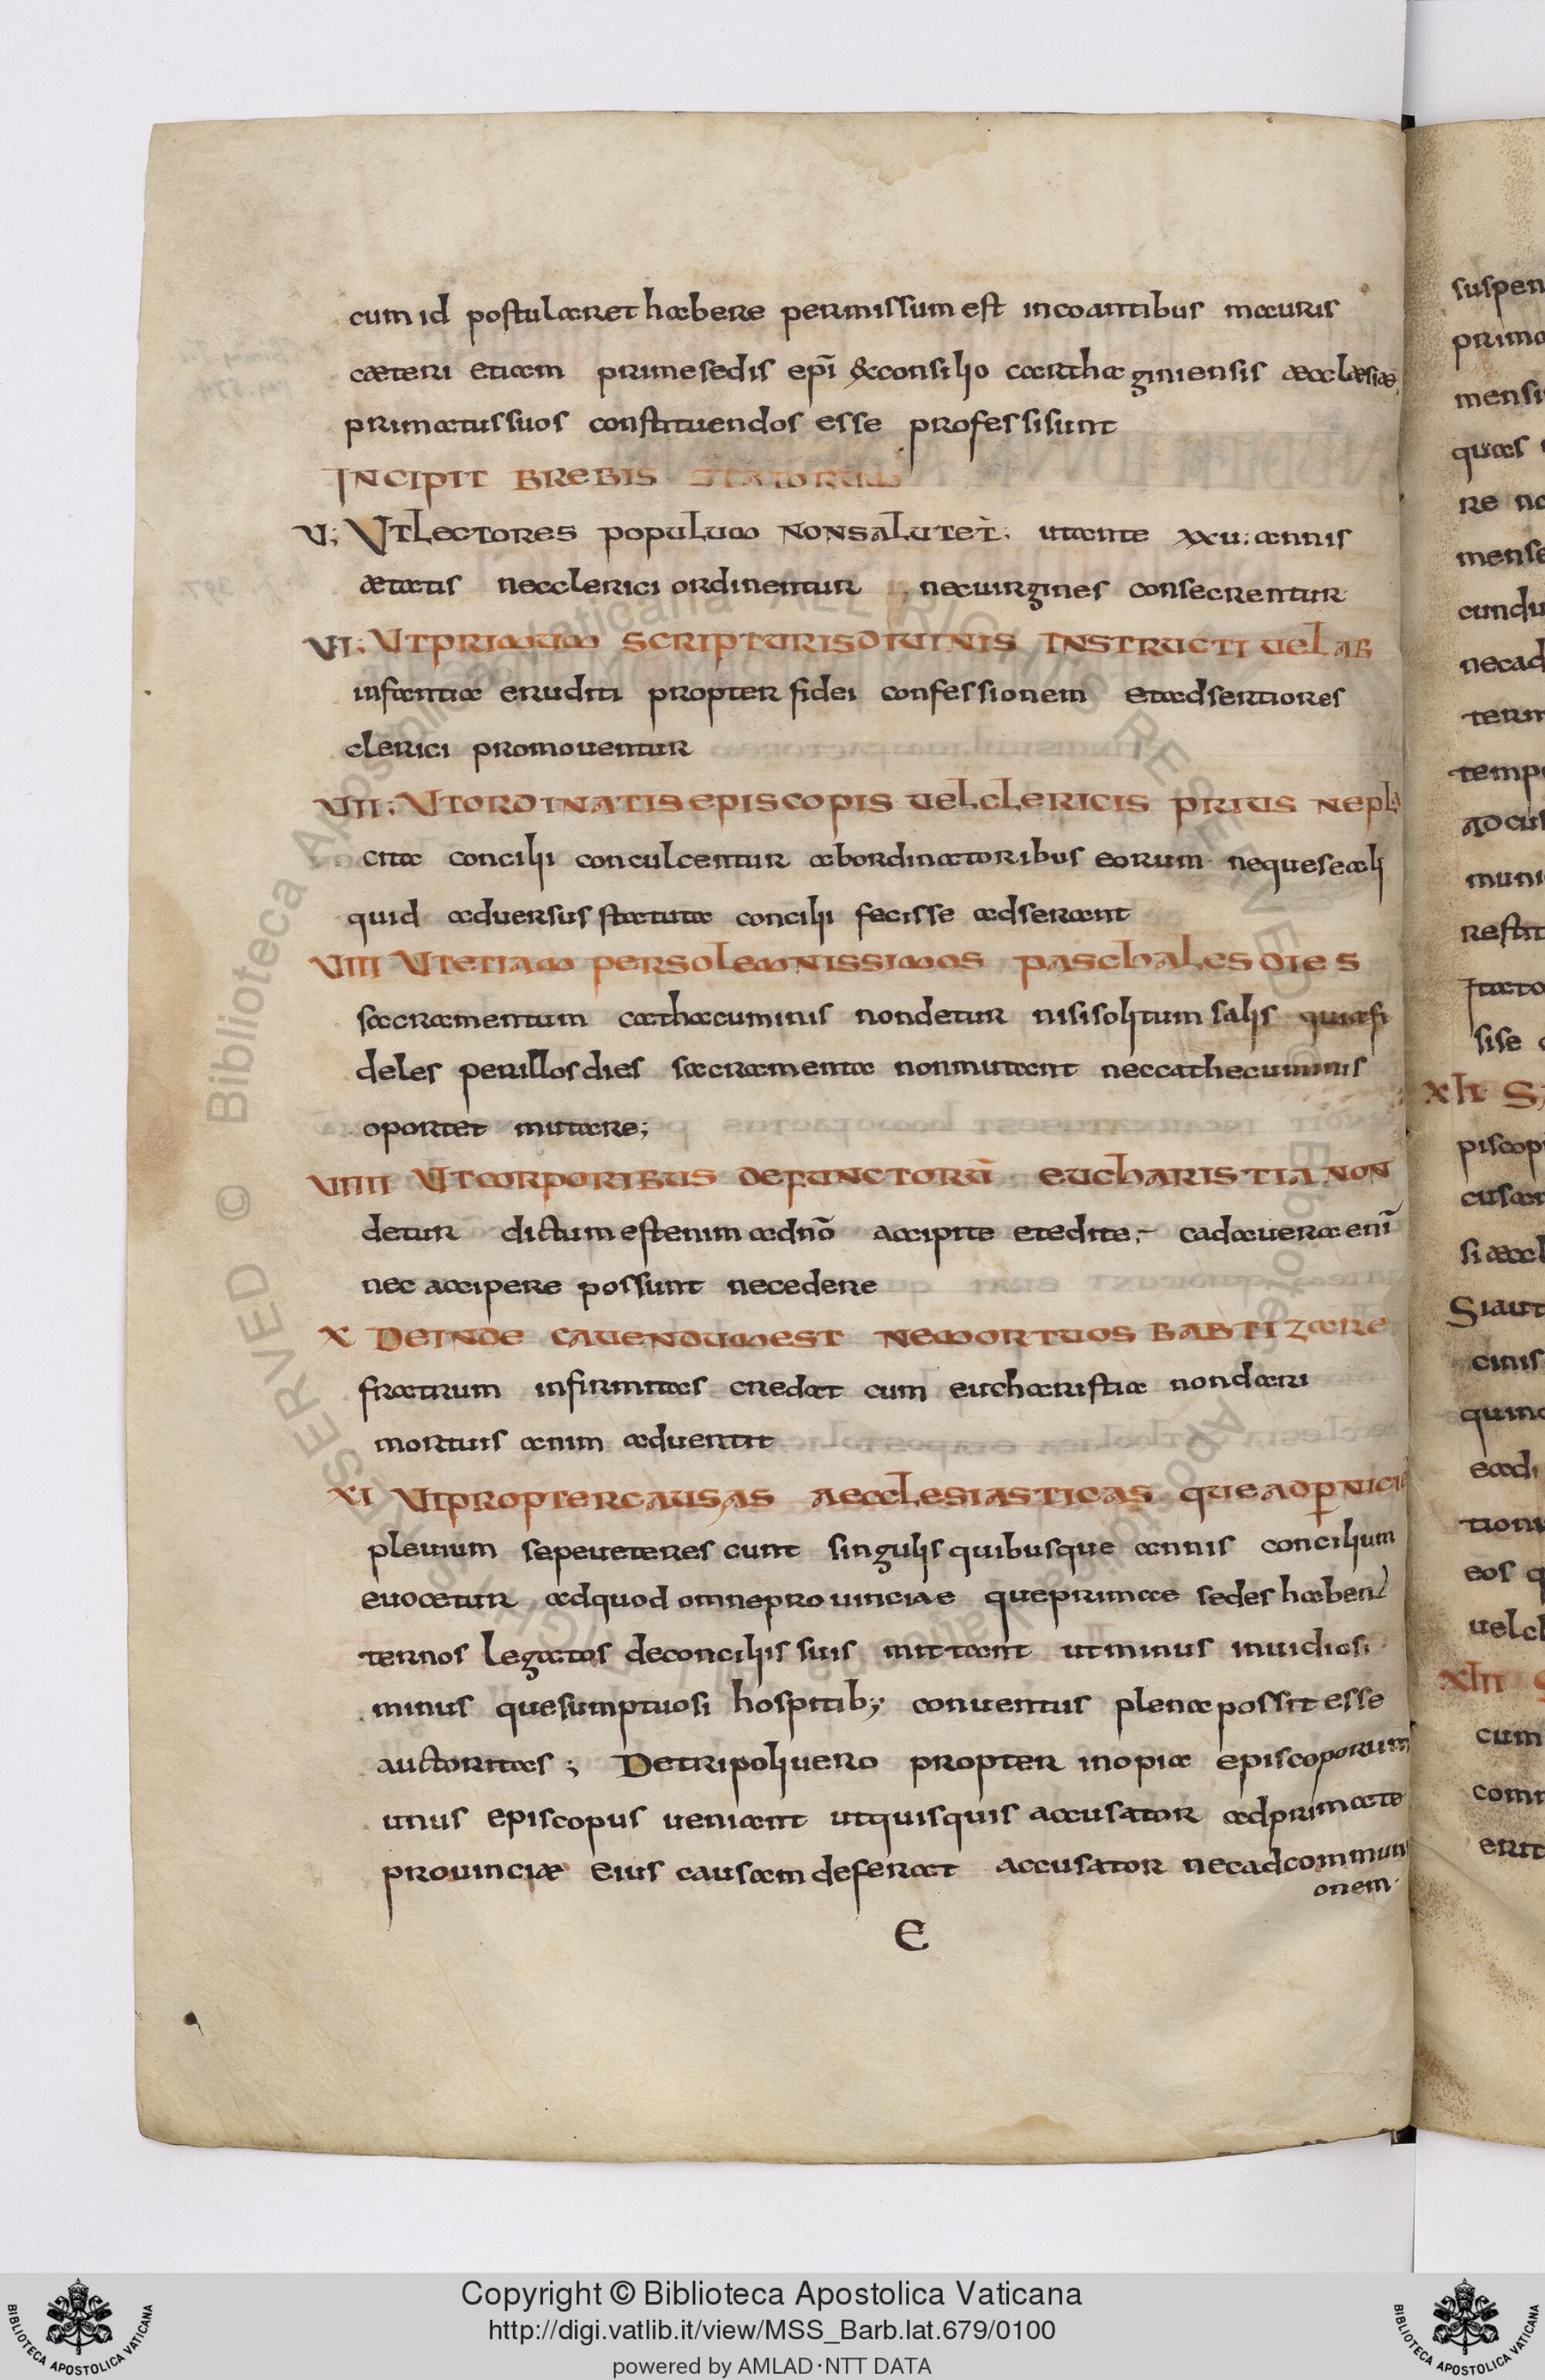 cum id postularet habere permissum est incoantibus mauris
cæteri etiam prime sedis epĩ &consilio cartha giniensis æcclæsiæ
primatus suos constituendos esse professi sunt
INCIPIT BREBIS STATORUM
V; UTLECTORES POPULUM NONSALUTET. ut ante xxu; annis
ætatis necclerici ordinentur necuirgines consecrentur
VI; UTPRIMUM SCRIPTURISDIUINIS INSTRUCTI UELAB
infantia eruditi propter fidei confessionem et adsertiores
clerici promouentur
VII; UTORDINATIS EPISCOPIS UELCLERICIS PRIUS NEPLA
cita concilii conculcentur abordinatoribus eorum nequeseali
quid aduersus statuta concilii fecisse adserant
VIII UTETIAM PERSOLEMNISSIMOS PASCHALES DIES
sacramentum cathacuminis nondetur nisisolitum salis quiafi
deles perillos dies sacramenta nonmutant neccathecuminis
oportet mutare;
VIIII UTCORPORIBUS DEFUNCTORŪ EUCHARISTIA NON
detur dictum estenim adnõ accipite etedite;- cadauera enĩ
nec accipere possunt necedere
X DEINDE CAUENDUMEST NEMORTUOS BABTIZARE
fratrum infirmitas credat cum eucharistia nondari
mortuis anim aduertit
XI UTPROPTERCAUSAS AECCLESIASTICAS QUEADP̱NICIĒ
pleuium sepeueteres cunt singulis quibusque annis concilium
euocetur adquod omneprouinciae queprimae sedes haben̄
ternos legatos deconciliis suis mittant ut minus inuidiosi
minus quesumptuosi hospitib; conuentus plena possit esse
auctoritas; Detripoliuero propter inopia episcoporum
unus episcopus ueniant utquisquis accusator adprimate
prouinciæ eius causam deferat accusator necadcommuni
onem.
E
suspen
prima
mensi
quas
re no
mense
cundu
necad
term
temp
adcus
muni
restit
Itato
sise
xlı S
piscop
cusan
si æccl
Siaut
cinis
quinq
eadi
tioni
eos q
uelcl
xlıı S
cum
comm
erit
© Biblioteca Apostolica Vaticana ALL RIGHTS RESERVED
© Biblioteca Apostolica Vaticana ALL RIGHTS RESERVED
BIBLIOTECA APOSTOLICA VATICANA
Copyright © Biblioteca Apostolica Vaticana
http://digi.vatlib.it/view/MSS_Barb.lat.679/0100
powered by AMLAD·NTT DATA
BIBLIOTECA APOSTOLICA VATICANA